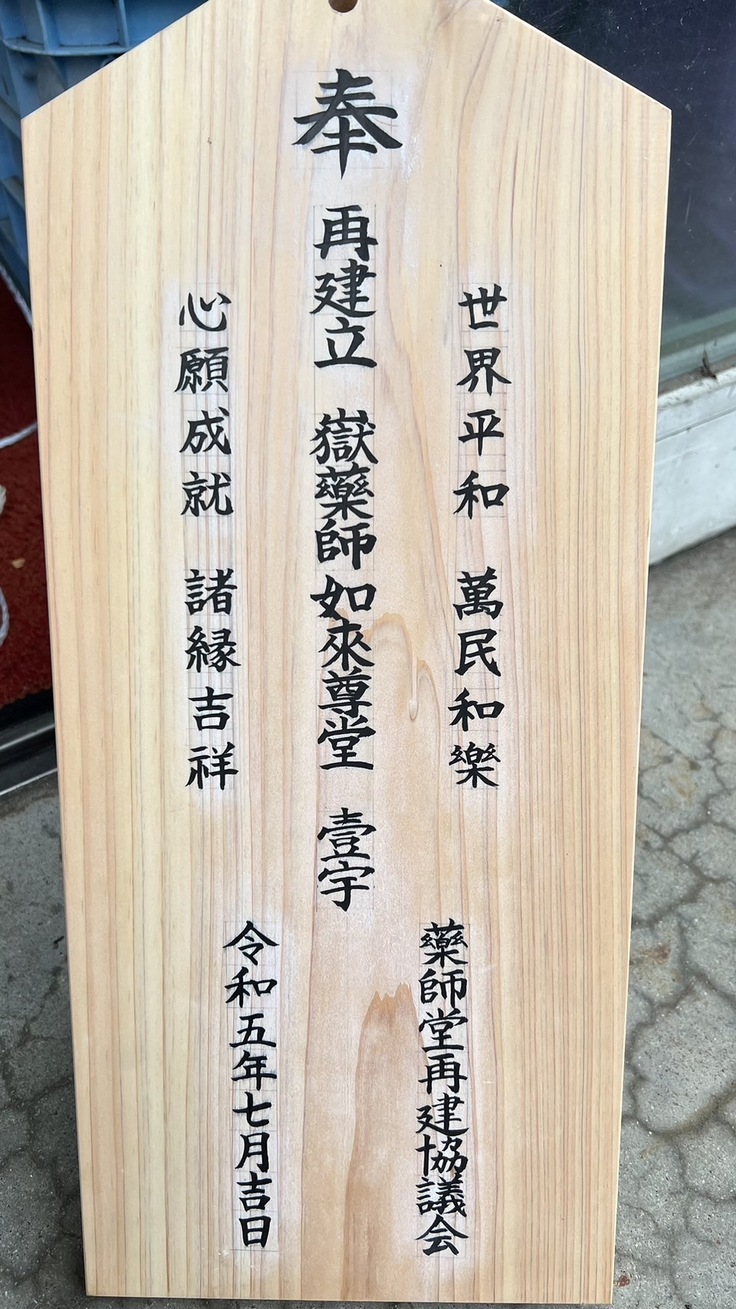 奉 再建立 嶽藥師如來尊堂 壹宇
世界平和 萬民和樂
心願成就 諸縁吉祥
藥師堂再建協議会
令和五年七月吉日